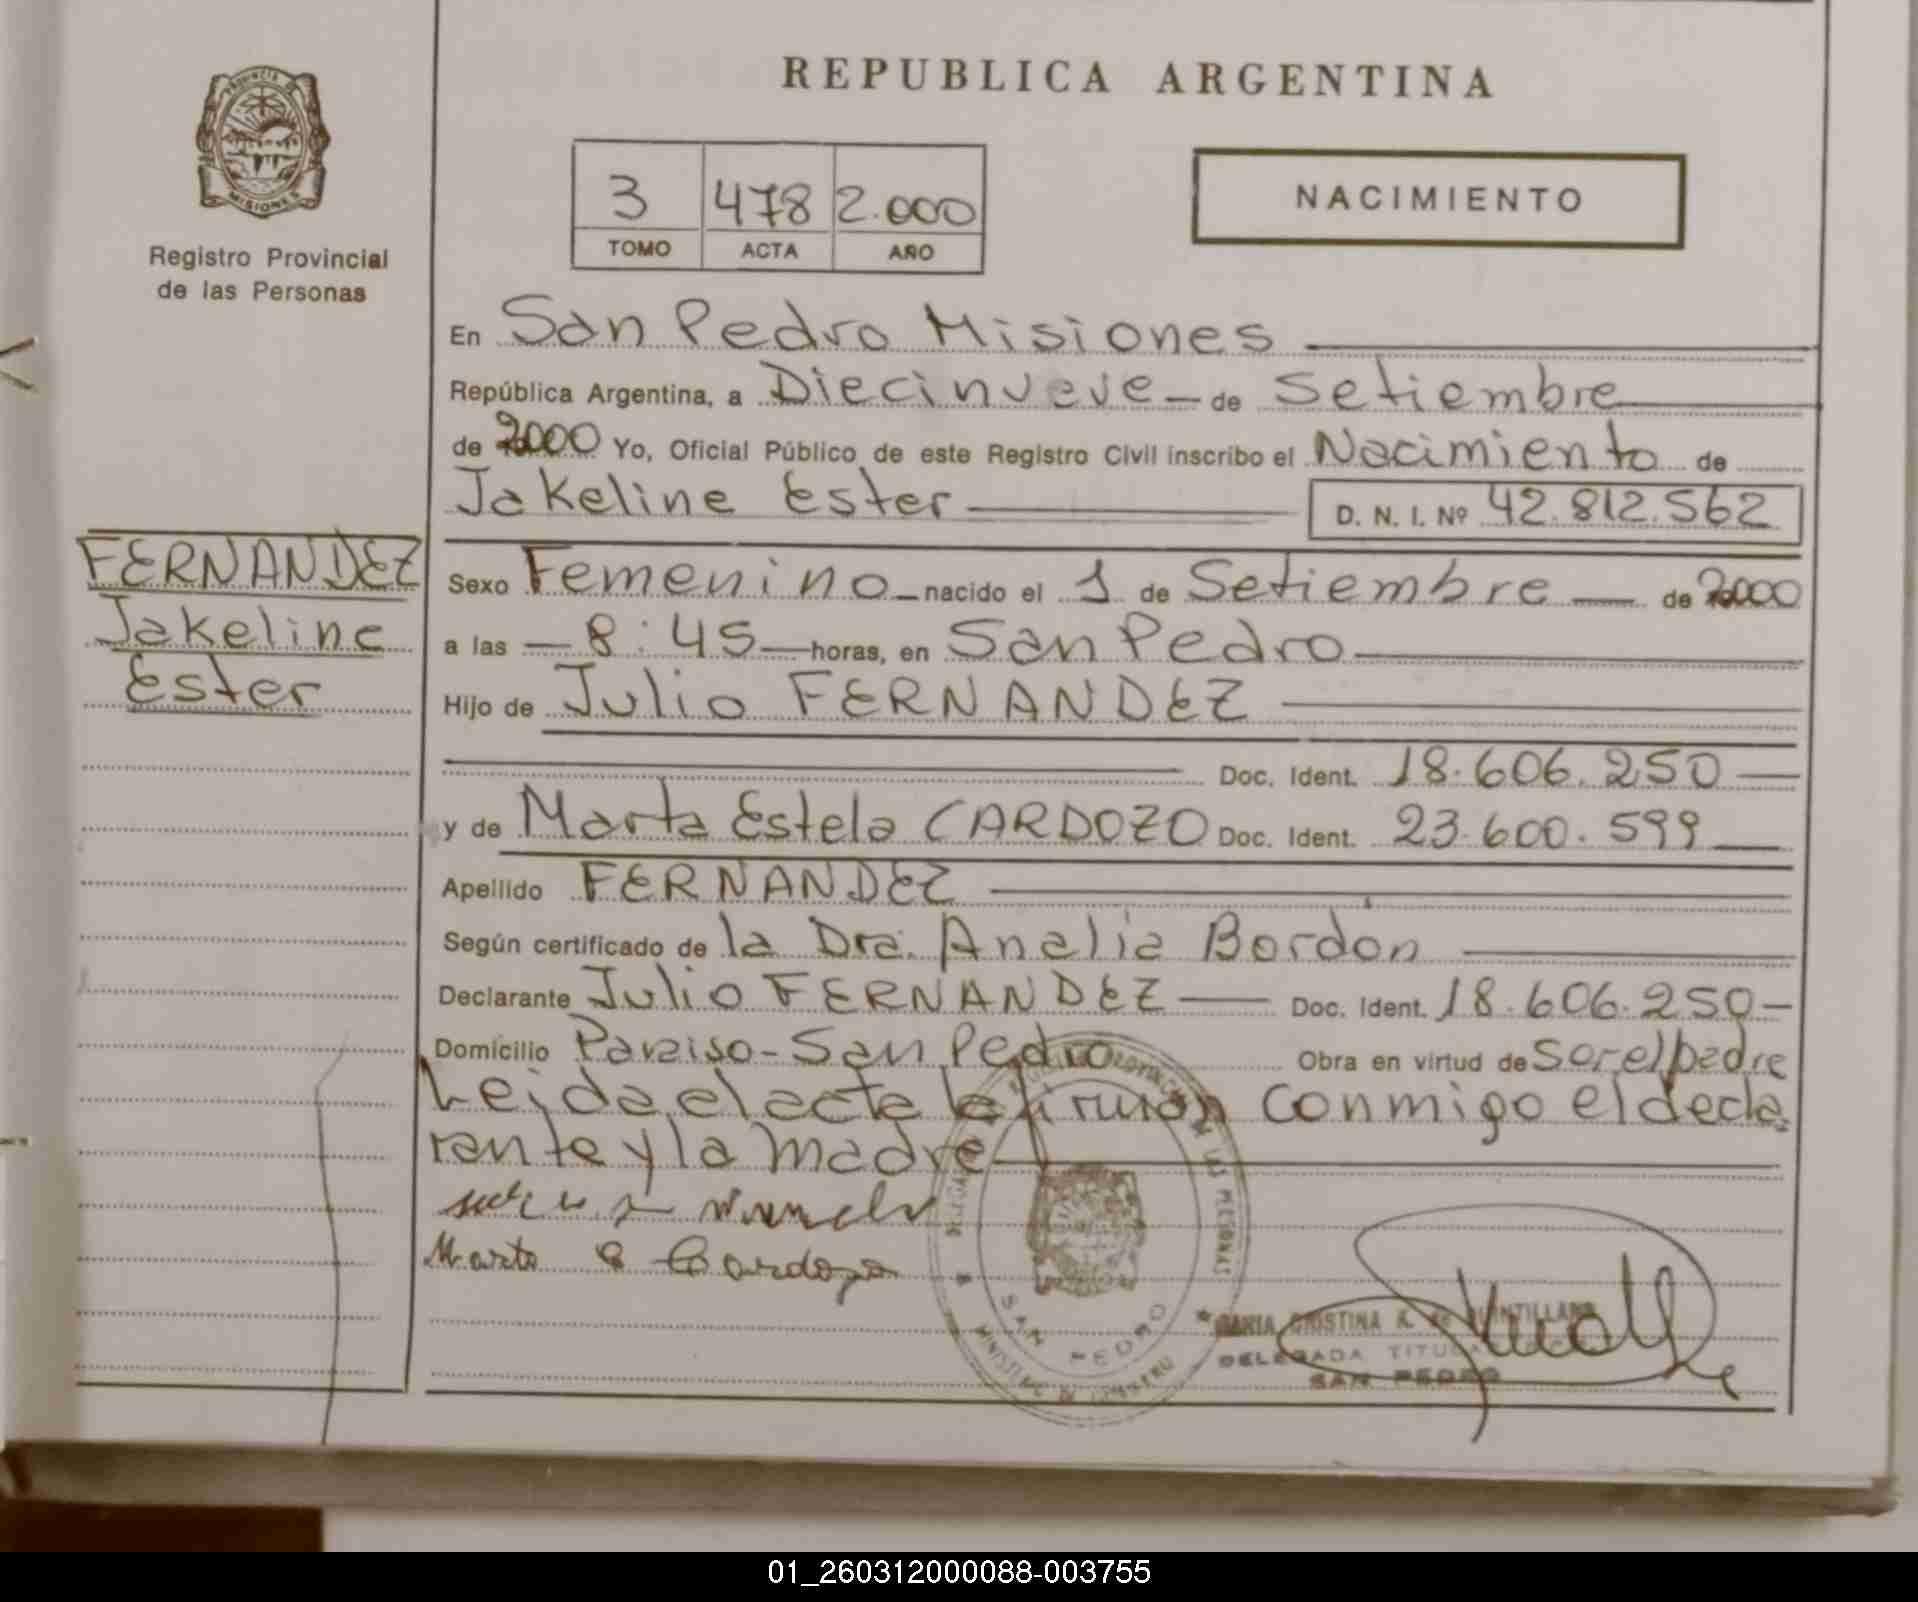 REPUBLICA ARGENTINA
PROVINCIA DE
MISIONES
Registro Provincial
de las Personas
3 478 2.000
TOMO ACTA AÑO
NACIMIENTO
En San Pedro Misiones
República Argentina, a Diecinueve de Setiembre
de 2000 Yo, Oficial Público de este Registro Civil inscribo el Nacimiento de
Jakeline Ester D. N. I. Nº 42.812.562
FERNANDEZ
Jakeline
Ester
Sexo Femenino nacido el 1 de Setiembre de 2000
a las 8:45 horas, en San Pedro
Hijo de Julio FERNANDEZ
Doc. Ident. 18.606.250
y de Marta Estela CARDOZO Doc. Ident. 23.600.599
Apellido FERNANDEZ
Según certificado de la Dra. Analia Bordón
Declarante Julio FERNANDEZ Doc. Ident. 18.606.250
Domicilio Paraiso - San Pedro Obra en virtud de Ser el padre
Leida el acta la firman conmigo el decla
rante y la madre
Marta E Cardozo
DE LAS PERSONAS
SAN PEDRO
MINISTERIO DE GOBIERNO
CRISTINA K. de QUINTILLANA
DELEGADA TITULAR
SAN PEDRO
01_260312000088-003755